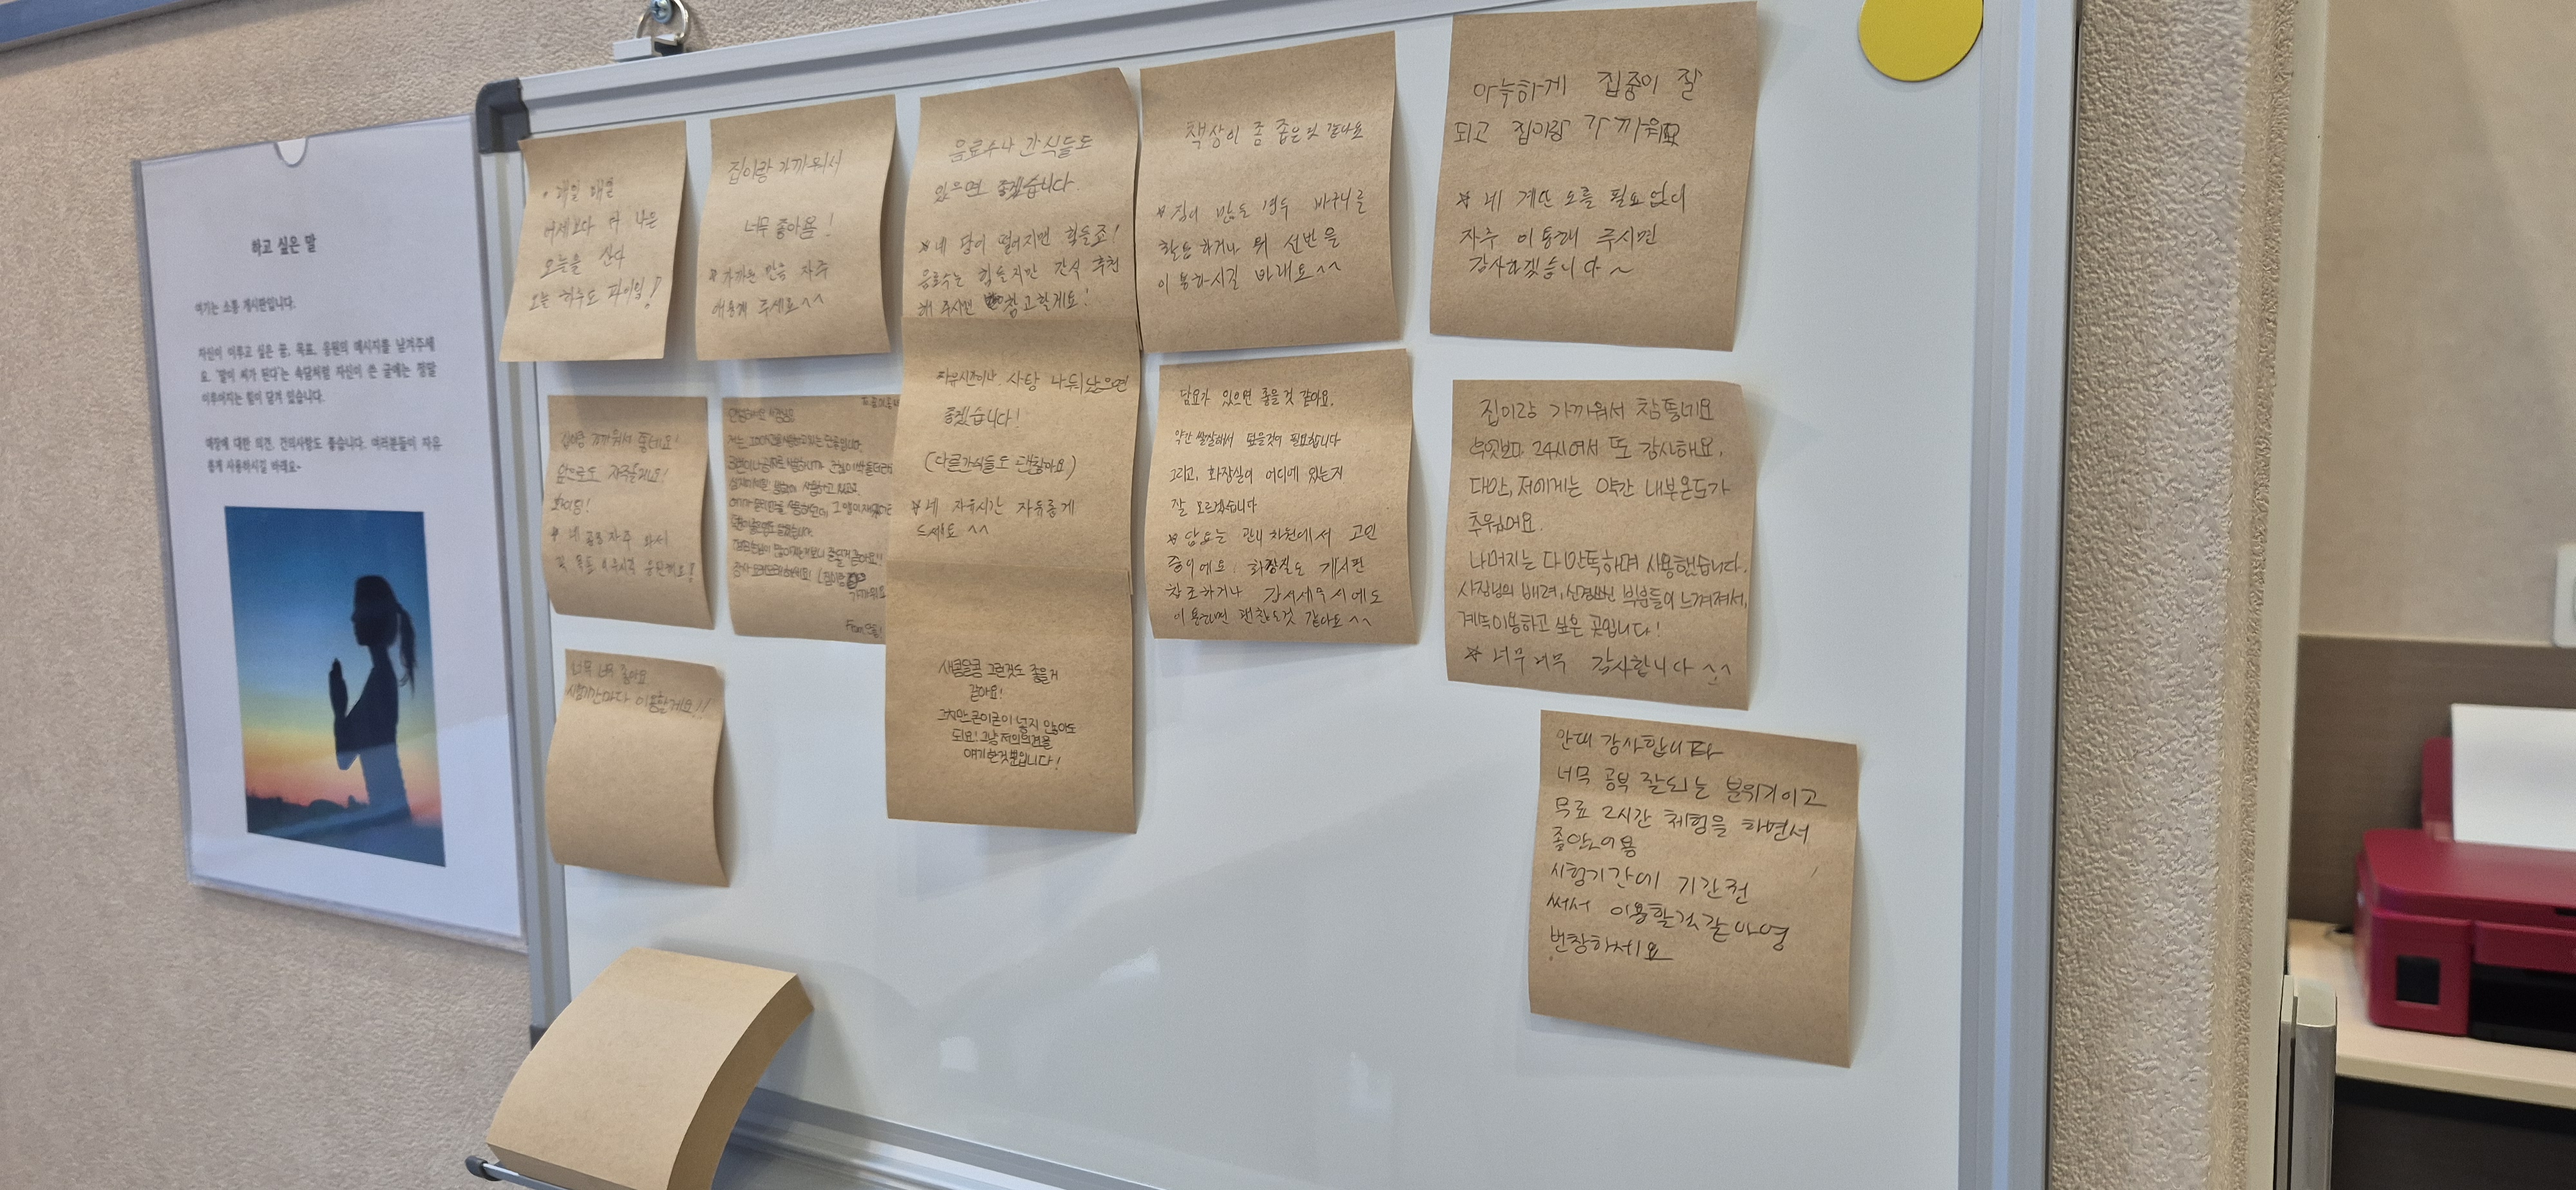 하고 싶은 말
여기는 소통 게시판입니다.
자신이 이루고 싶은 꿈, 목표, 응원의 메시지를 남겨주세
요. '말이 씨가 된다'는 속담처럼 자신이 쓴 글에는 정말
이루어지는 힘이 담겨 있습니다.
매장에 대한 의견, 건의사항도 좋습니다. 여러분들이 자유
롭게 사용하시길 바래요~
매일 매일
어제보다 더 나은
오늘을 산다
오늘 하루도 파이팅!
집이랑 가까워서
너무 좋아욤!
* 가까운 만큼 자주
애용해 주세요^^
음료수나 간식들도
있으면 좋겠습니다
* 네 당이 떨어지면 힘들죠!
음료수는 힘들지만 간식 추천
해 주시면 참고할게요!
자유시간이나 사탕 나둬놨으면
좋겠습니다!
(다른간식들도 괜찮아요)
* 네 자유시간 자유롭게
드세요 ^^
새콤달콤 그런것도 좋을거
같아요!
그치만 굳이굳이 넣지 않아도
되요! 그냥 저의의견을
얘기한것뿐입니다!
책상이 좀 좁은것 같아요
* 짐이 많은 경우 바구니를
활용하거나 뒤 선반을
이용하시길 바래요^^
담요가 있으면 좋을것 같아요.
약간 쌀쌀해서 덮을것이 필요합니다
그리고, 화장실이 어디에 있는지
잘 모르겠습니다
* 담요는 관리차원에서 고민
중이에요. 화장실은 게시판
참조하거나
이용하면 괜찮을것 같아요^^
아늑하게 집중이 잘
되고 집이랑 가까워요
* 네 계단 오를 필요없이
자주 이용해 주시면
감사하겠습니다~
집이랑 가까워서 참 좋네요
무엇보다 24시여서 또 감사해요.
다만, 저에게는 약간 내부온도가
추웠어요.
나머지는 다 만족하며 사용했습니다.
사장님의 배려, 신경쓰신 부분들이 느껴져서,
계속이용하고 싶은 곳입니다!
* 너무너무 감사합니다 ^^
집이랑 가까워서 좋네요!
앞으로도 자주올게요!
화이팅!
* 네 공부 자주 와서
꼭 목표 이루시길 응원해요!
너무 너무 좋아요
시험기간마다 이용할게요!!
안대 감사합니다
너무 공부 잘되는 분위기이고
무료 2시간 체험을 하면서
좋았어용
시험기간에 기간권
써서 이용할것같아영
번창하세요